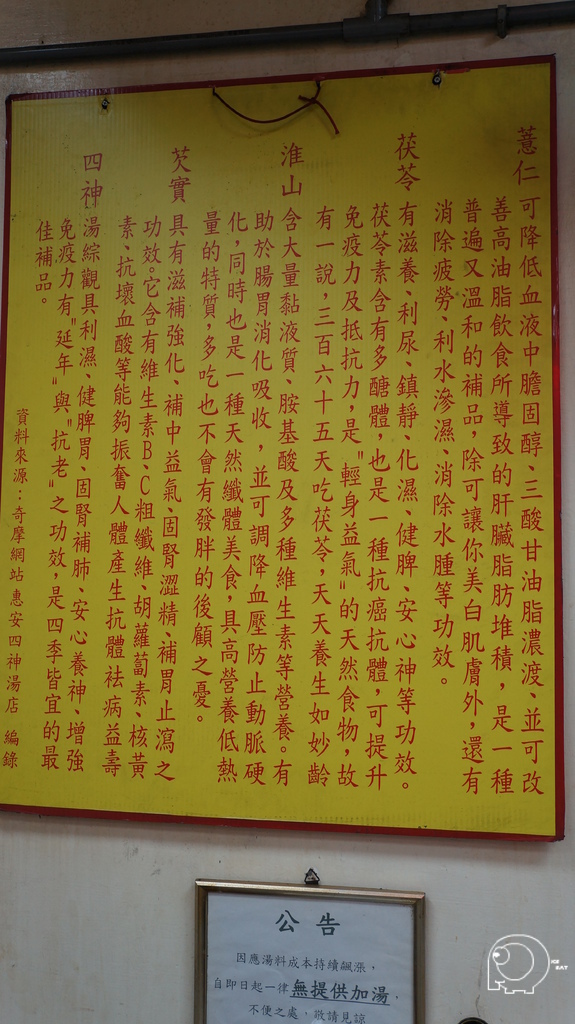 薏仁 可降低血液中膽固醇、三酸甘油脂濃渡、並可改
善高油脂飲食所導致的肝臟脂肪堆積，是一種
普遍又溫和的補品，除可讓你美白肌膚外，還有
消除疲勞、利水滲濕、消除水腫等功效。
茯苓 有滋養、利尿、鎮靜、化濕、健脾、安心神等功效。
茯苓素含有多醣體，也是一種抗癌抗體，可提升
免疫力及抵抗力，是"輕身益氣"的天然食物，故
有一說，三百六十五天吃茯苓，天天養生如妙齡
淮山 含大量黏液質、胺基酸及多種維生素等營養。有
助於腸胃消化吸收，並可調降血壓防止動脈硬
化，同時也是一種天然纖體美食，具高營養低熱
量的特質，多吃也不會有發胖的後顧之憂。
芡實 具有滋補強化、補中益氣、固腎澀精、補胃止瀉之
功效。它含有維生素B、C粗纖維、胡蘿蔔素、核黃
素、抗壞血酸等能夠振奮人體產生抗體祛病益壽
四神湯綜觀具利濕、健脾胃、固腎補肺、安心養神、增強
免疫力有"延年"與"抗老"之功效，是四季皆宜的最
佳補品。
資料來源：奇摩網站 惠安四神湯店 編錄
公告
因應湯料成本持續飆漲，
自即日起一律無提供加湯，
不便之處，敬請見諒
ICE
BAT